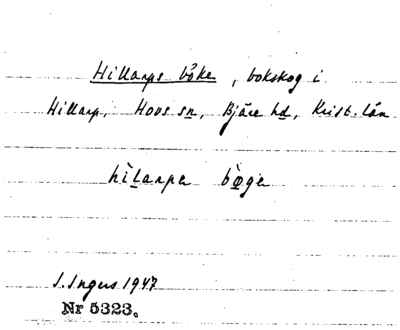 Hillarps böke, bokskog i
Hillarp, Hovs sn, Bjäre hd, Krist. län
hìlarpa bø̀ga
I. Ingers 1947
Nr 5323.